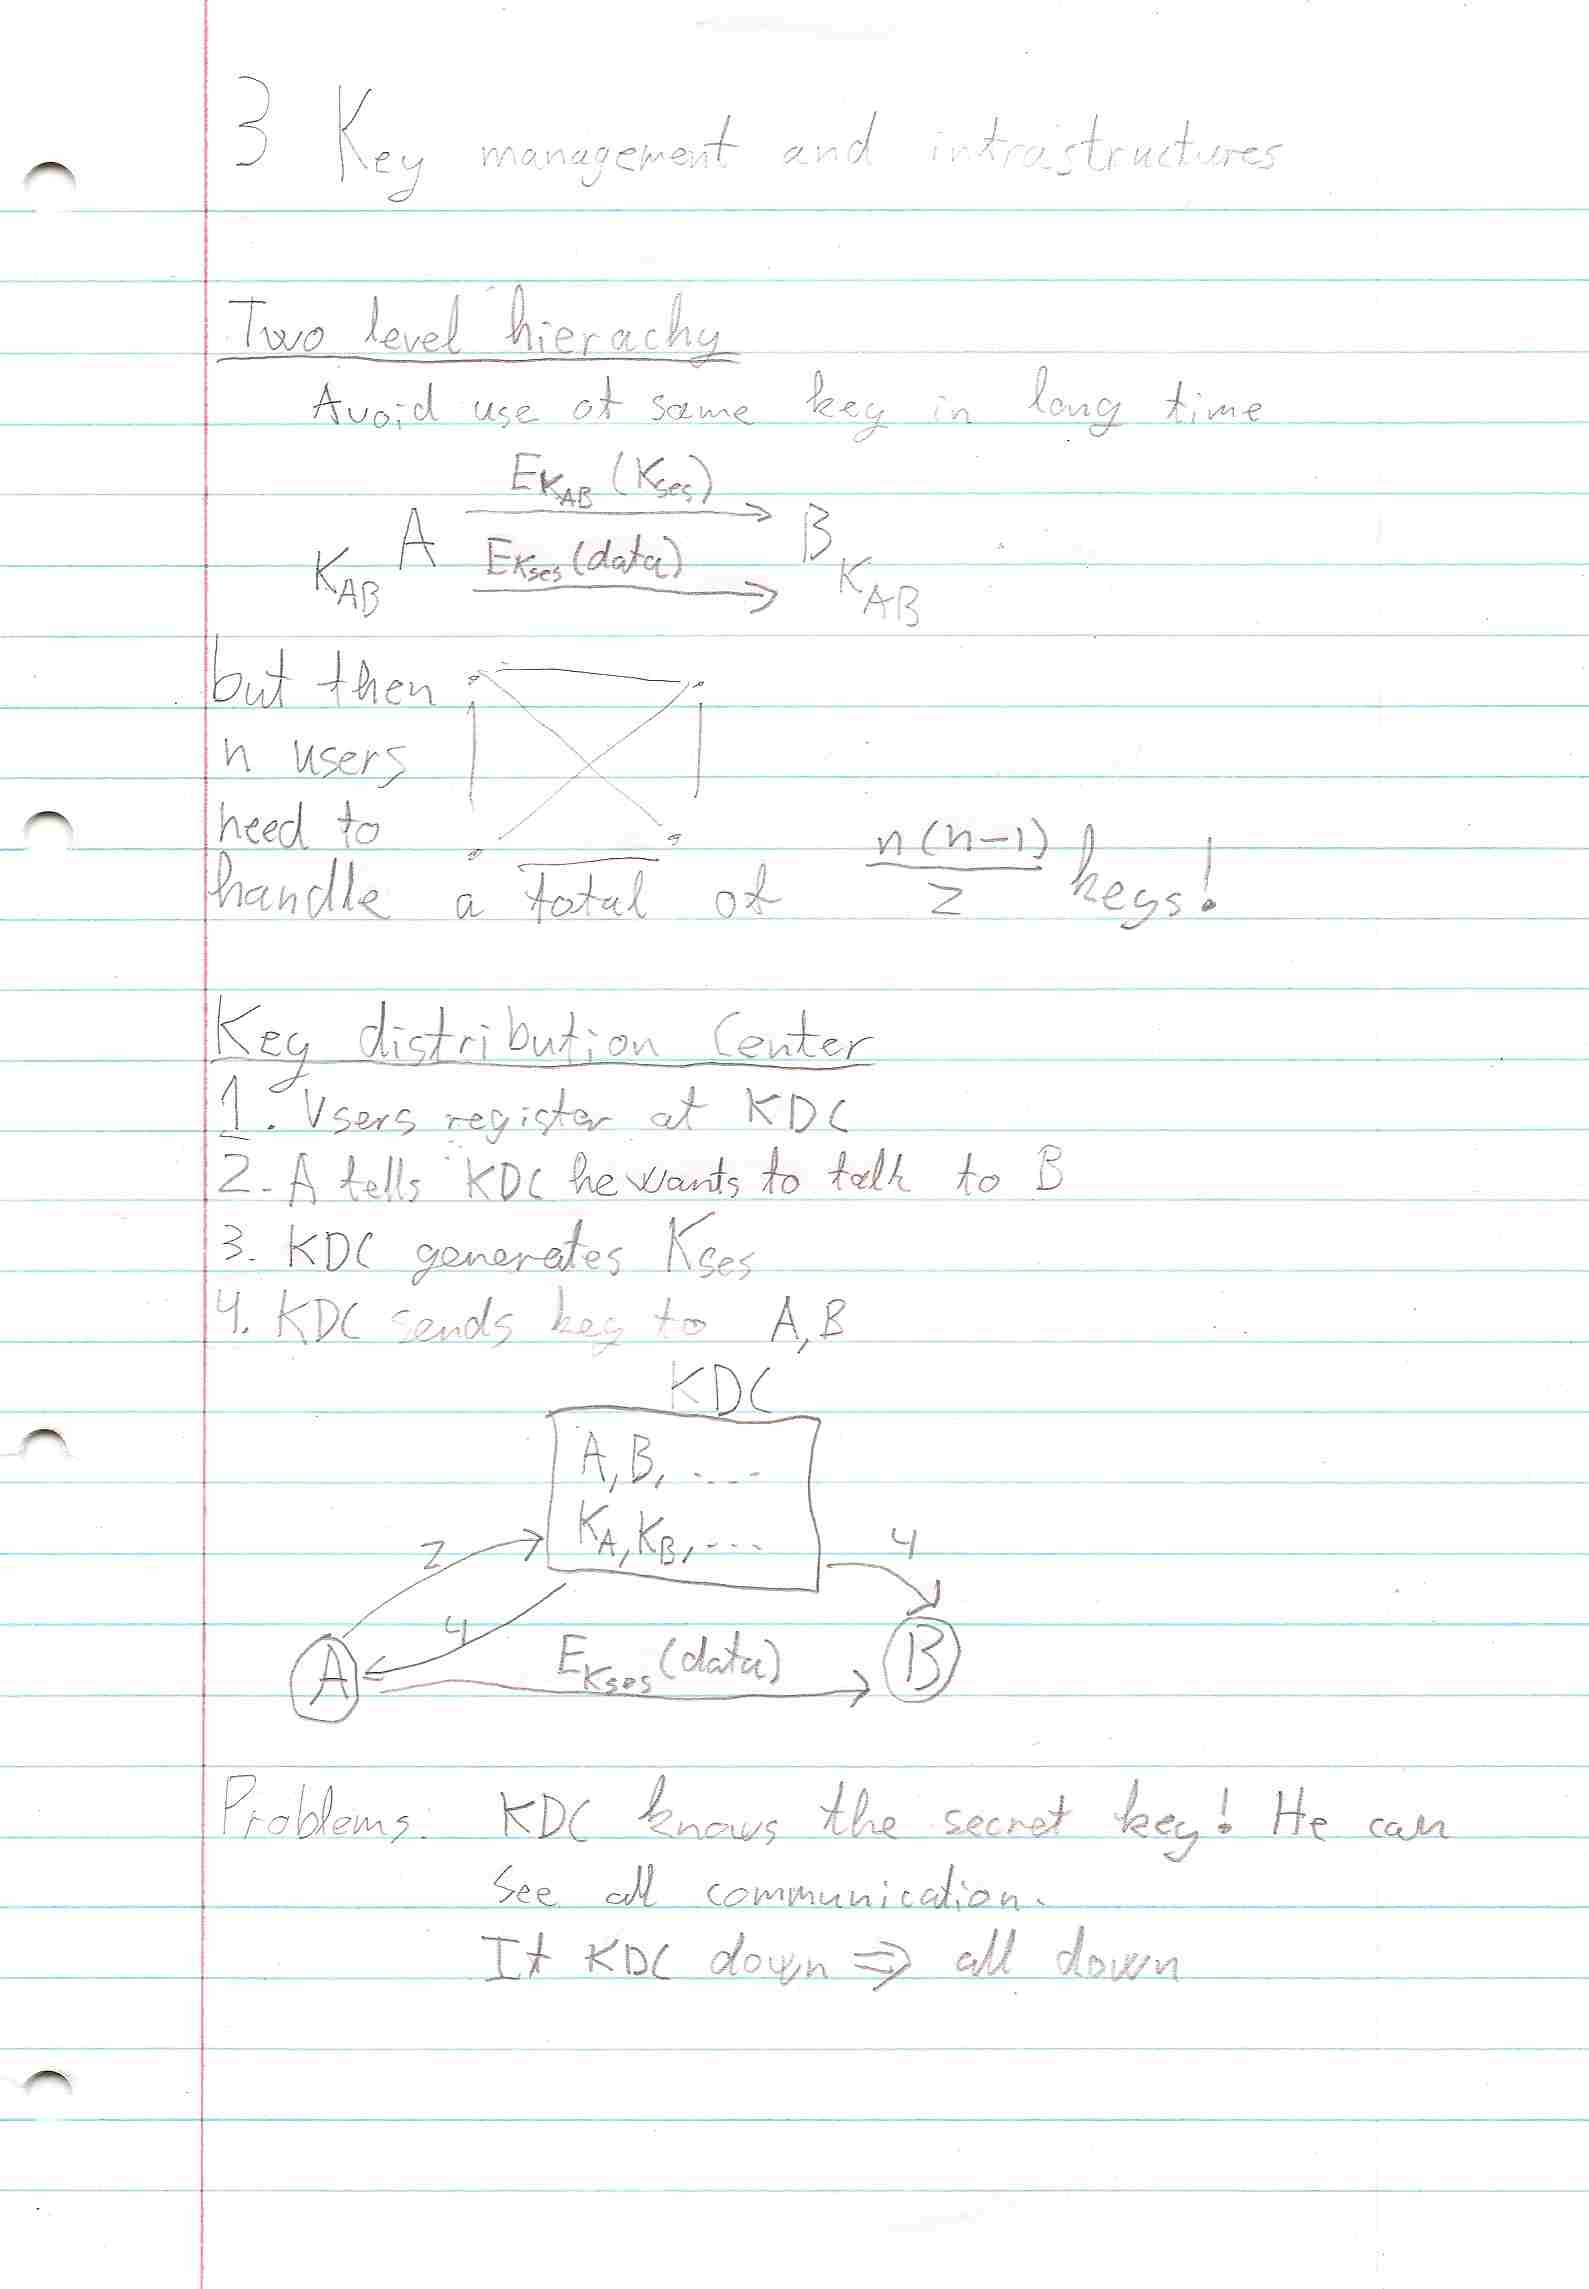 3 Key management and infrastructures
Two level hierachy
Avoid use of same key in long time
E_{K_{AB}}(K_{ses})
A B
E_{K_{ses}}(data)
K_{AB} K_{AB}
but then
n users
need to
handle a total of n(n-1)/2 keys!
Key distribution Center
1. Users register at KDC
2. A tells KDC he wants to talk to B
3. KDC generates K_{ses}
4. KDC sends key to A,B
KDC
A, B, .....
K_A, K_B, ....
2 4
4
A E_{K_{ses}}(data) B
Problems: KDC knows the secret key! He can
see all communication.
If KDC down ⇒ all down